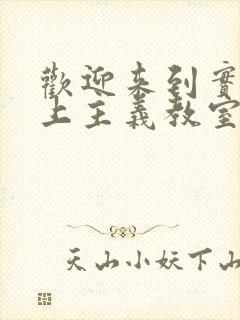 歡迎來到實
上主義教室
天山小妖下山